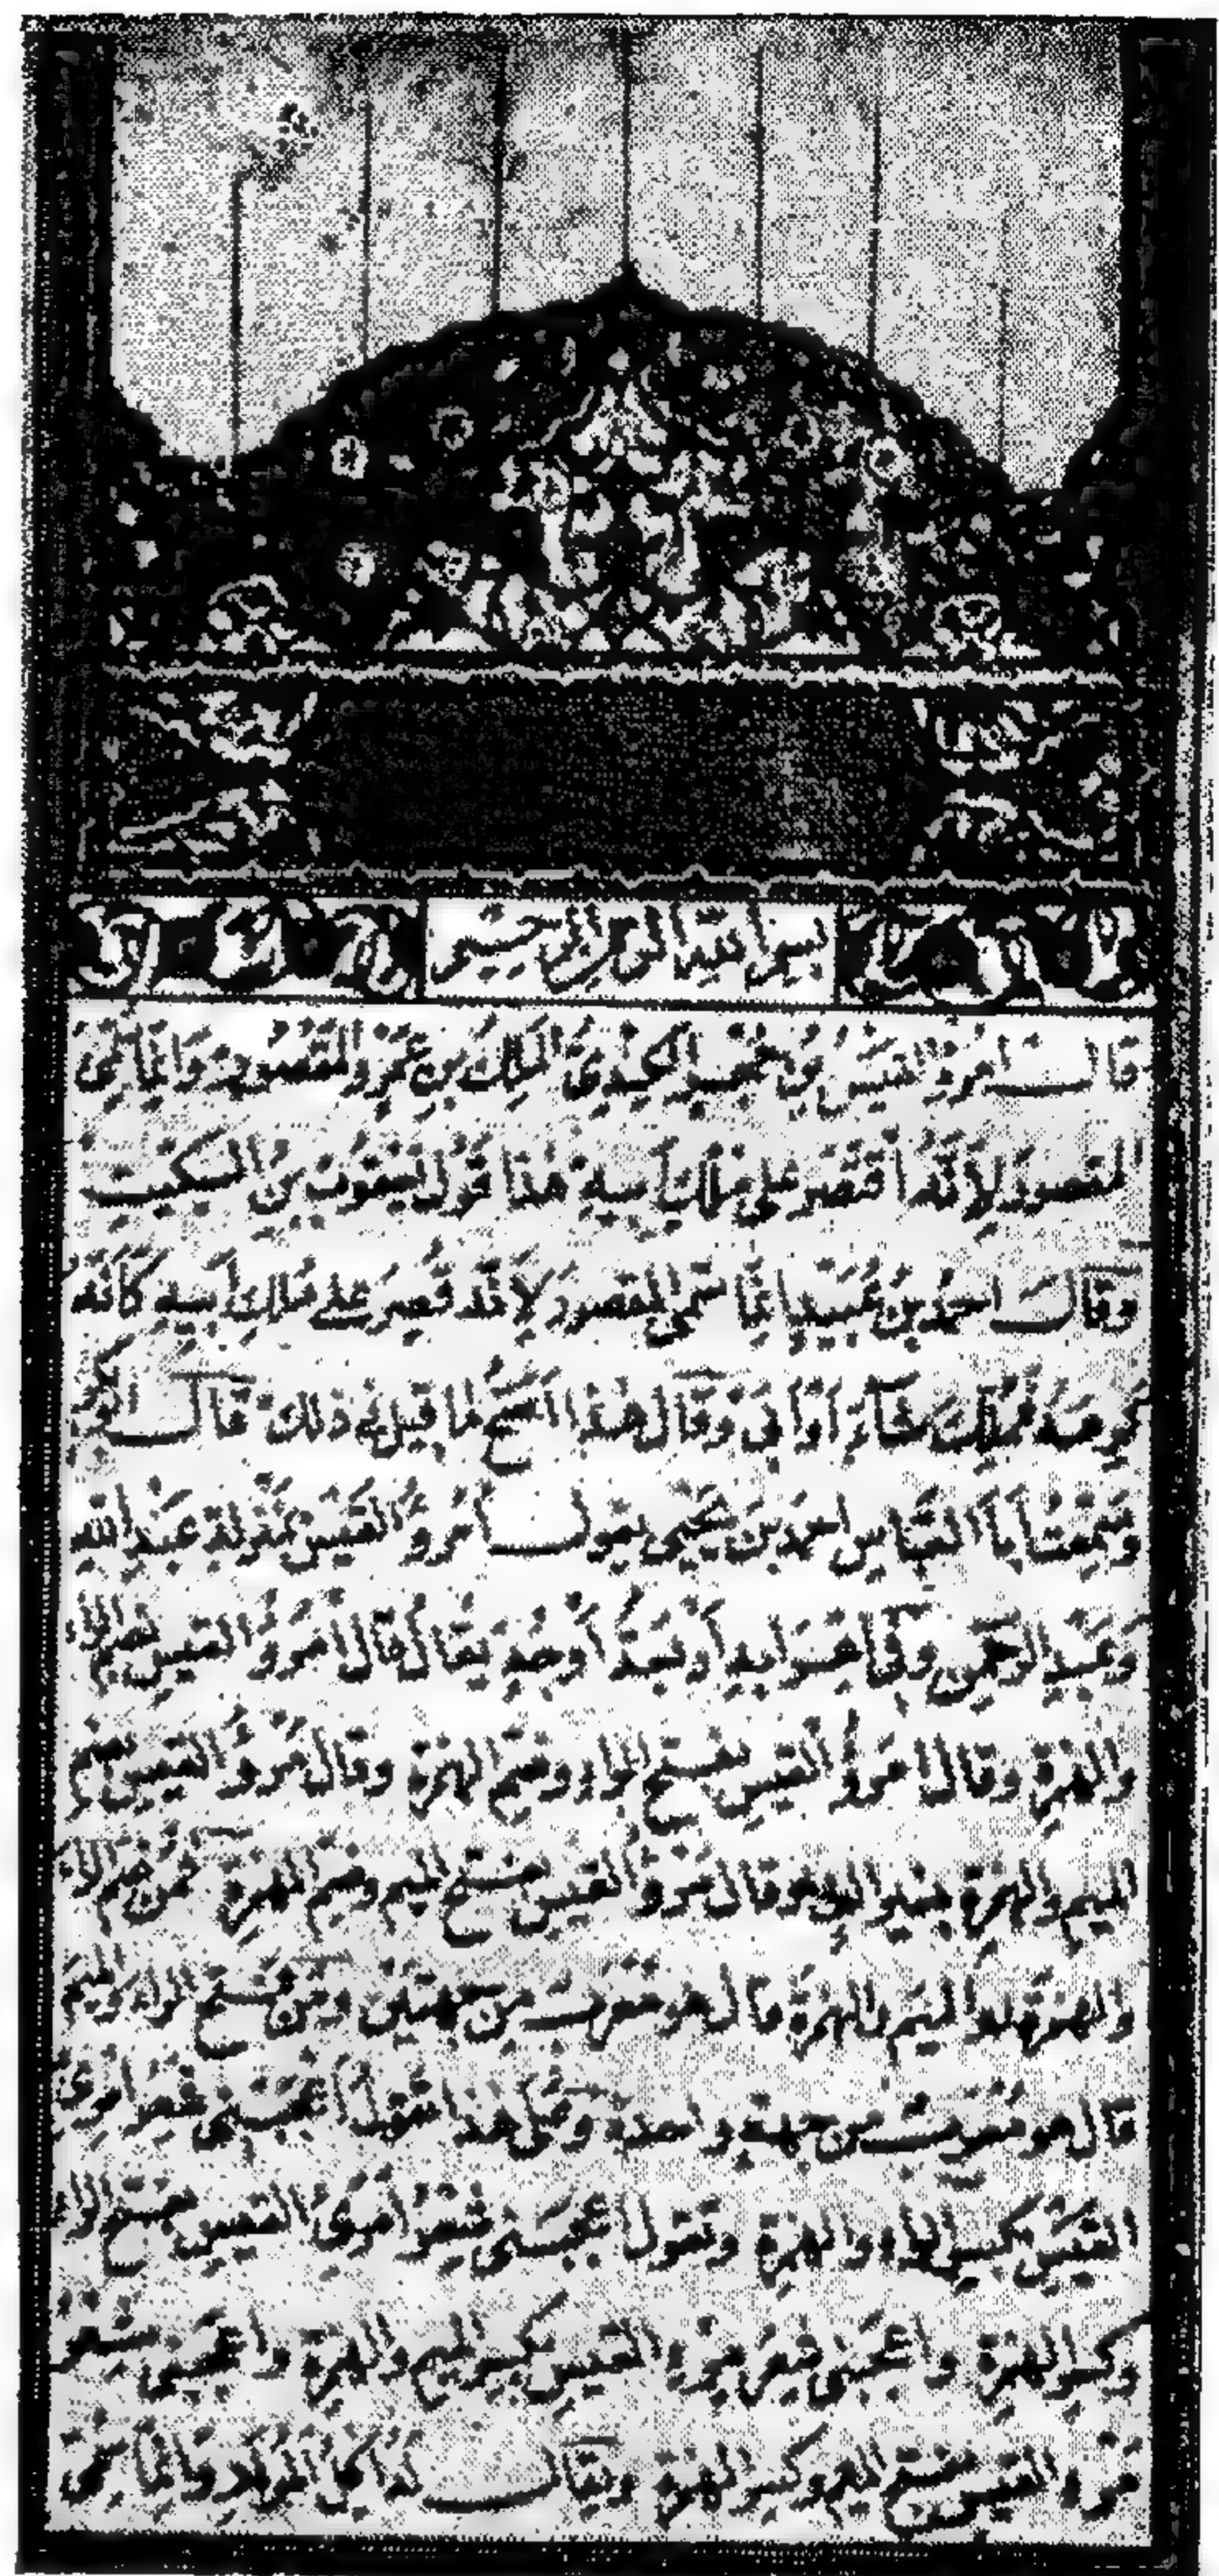 بسم الله الرحمن الرحيم
قال امرؤ القيس بن حجر الكندي الملك بن عمرو المقصور وانما سمي
المقصور لأنه اقتصر على ملك أبيه هذا قول يعقوب بن السكيت
وقال احمد بن عبيد انما سمي المقصور لأنه قصر على ملك أبيه كأنه
كره فملك شاء أو أبى وقال هذا أصح ما قيل في ذلك قال أبو بكر
وسمعت أبا العباس احمد بن يحيى يقول امرؤ القيس بمنزلة عبد الله
وعبد الرحمن وفي اعرابه أربعة أوجه يقال قال امرؤ القيس بضم الراء
والهمزة وقال امرأ القيس بفتح الراء وضم الهمزة وقال مرؤ القيس بضم
الميم والهمزة بغير الف وقال مرؤ القيس بفتح الميم وضم الهمزة فمن ضم الراء
والهمزة والميم والهمزة قال هو معرب من جهتين ومن فتح الراء والميم
قال هو معرب من جهة واحدة وعلى هذا تقول أعجبني شعر امرئ
القيس بكسر الراء والهمزة وتقول أعجبني شعر امرئ القيس بفتح الراء
وكسر الهمزة وأعجبني شعر مرء القيس بكسر الميم والهمزة وأعجبني شعر
مرء القيس بفتح الميم وكسر الهمزة ويقال